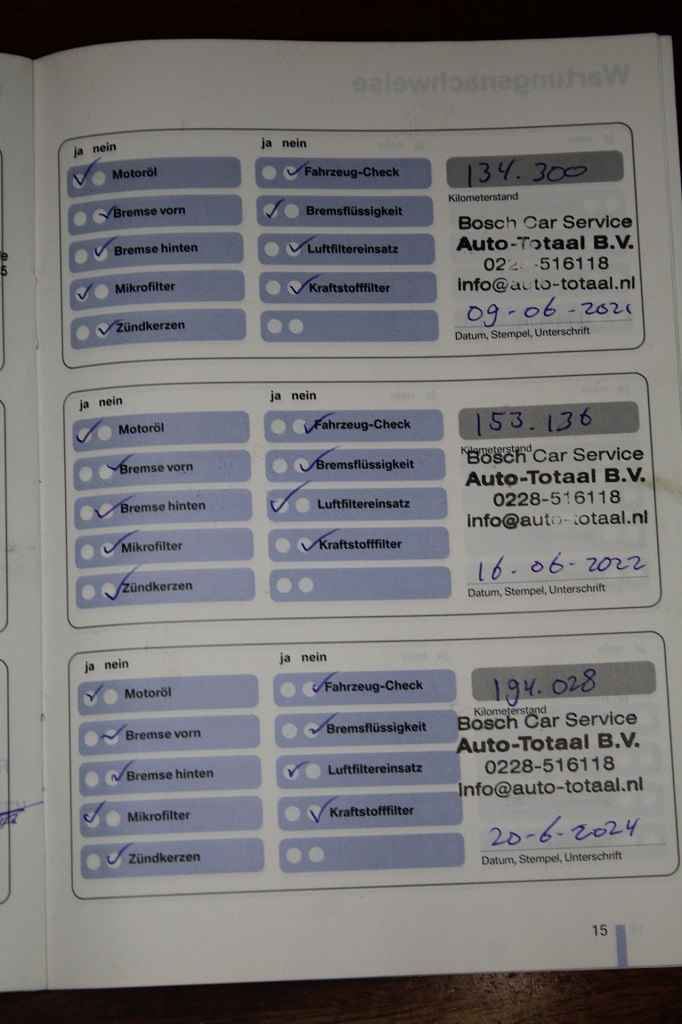 Wartungsnachweise
ja nein
ja nein
Motoröl
Fahrzeug-Check
134.300
Bremse vorn
Bremsflüssigkeit
Kilometerstand
Bremse hinten
Luftfiltereinsatz
Bosch Car Service
Auto-Totaal B.V.
Mikrofilter
Kraftstofffilter
-516118
info@auto-totaal.nl
Zündkerzen
09-06-2021
Datum, Stempel, Unterschrift
ja nein
ja nein
Motoröl
Fahrzeug-Check
153.136
Bremse vorn
Bremsflüssigkeit
Kilometerstand
Bosch Car Service
Bremse hinten
Luftfiltereinsatz
Auto-Totaal B.V.
0228-516118
Mikrofilter
Kraftstofffilter
info@auto-totaal.nl
Zündkerzen
16-06-2022
Datum, Stempel, Unterschrift
ja nein
ja nein
Motoröl
Fahrzeug-Check
194.028
Kilometerstand
Bremse vorn
Bremsflüssigkeit
Bosch Car Service
Auto-Totaal B.V.
Bremse hinten
Luftfiltereinsatz
0228-516118
info@auto-totaal.nl
Mikrofilter
Kraftstofffilter
Zündkerzen
20-6-2024
Datum, Stempel, Unterschrift
15